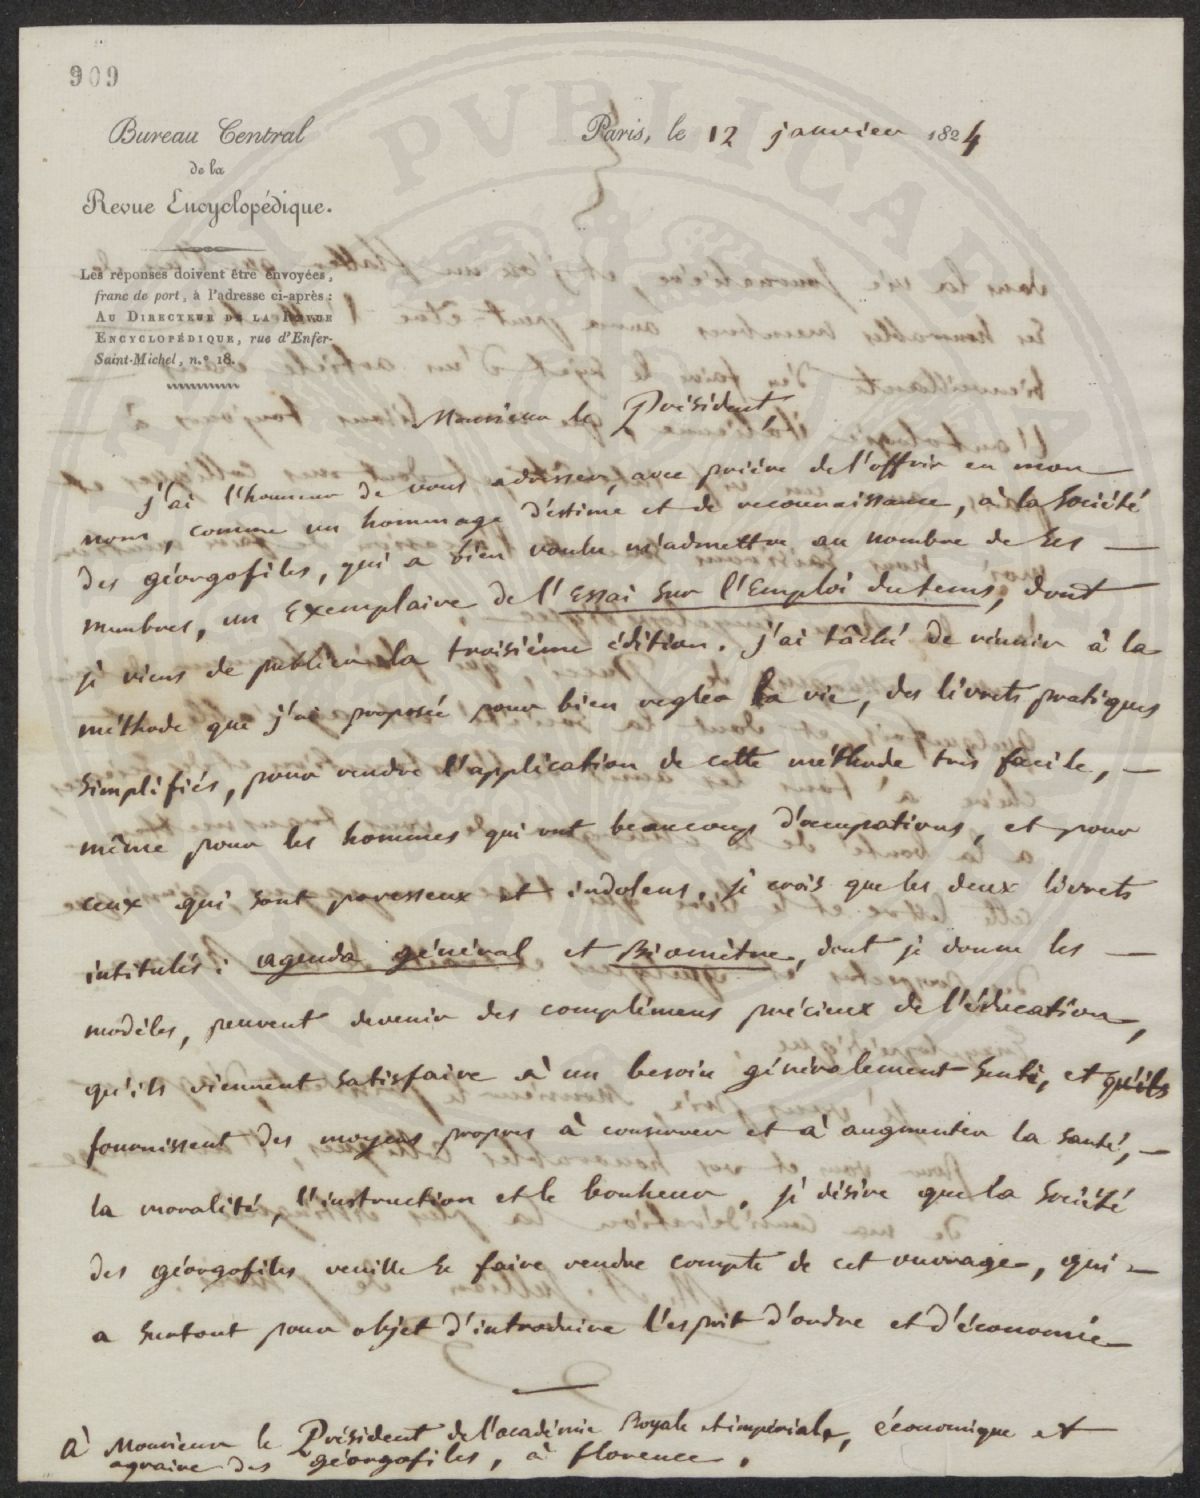 909
Bureau Central
de la
Revue Encyclopédique.
Paris, le 12 janvier 1824
Les réponses doivent être envoyées,
franc de port, à l'adresse ci-après :
AU DIRECTEUR DE LA REVUE
ENCYCLOPÉDIQUE, rue d'Enfer-
Saint-Michel, n.º 18.
Monsieur le Président
j'ai l'honneur de vous adresser, avec prière de l'offrir en mon
nom, comme un hommage d'estime et de reconnaissance, à la Société
des géorgofiles, qui a bien voulu m'admettre au nombre de ses —
membres, un Exemplaire de l'Essai sur l'Emploi du tems, dont
je viens de publier la troisième édition. j'ai tâché de réunir à la
méthode que j'ai proposée pour bien regler la vie, des livrets pratiques
simplifiés, pour rendre l'application de cette méthode très facile, —
même pour les hommes qui ont beaucoup d'occupations, et pour
ceux qui sont paresseux et indolens. je crois que les deux livrets
intitulés : agenda général et Biomètre, dont je donne les —
modèles, peuvent devenir des complémens précieux de l'éducation,
qu'ils viennent satisfaire à un besoin généralement senti, et qu'ils
fournissent des moyens propres à conserver et à augmenter la santé, —
la moralité, l'instruction et le bonheur. je désire que la Société
des géorgofiles veuille se faire rendre compte de cet ouvrage, qui —
a surtout pour objet d'introduire l'esprit d'ordre et d'économie
à Monsieur le Président de l'académie Royale et impériale, économique et
agraire des géorgofiles, à florence.